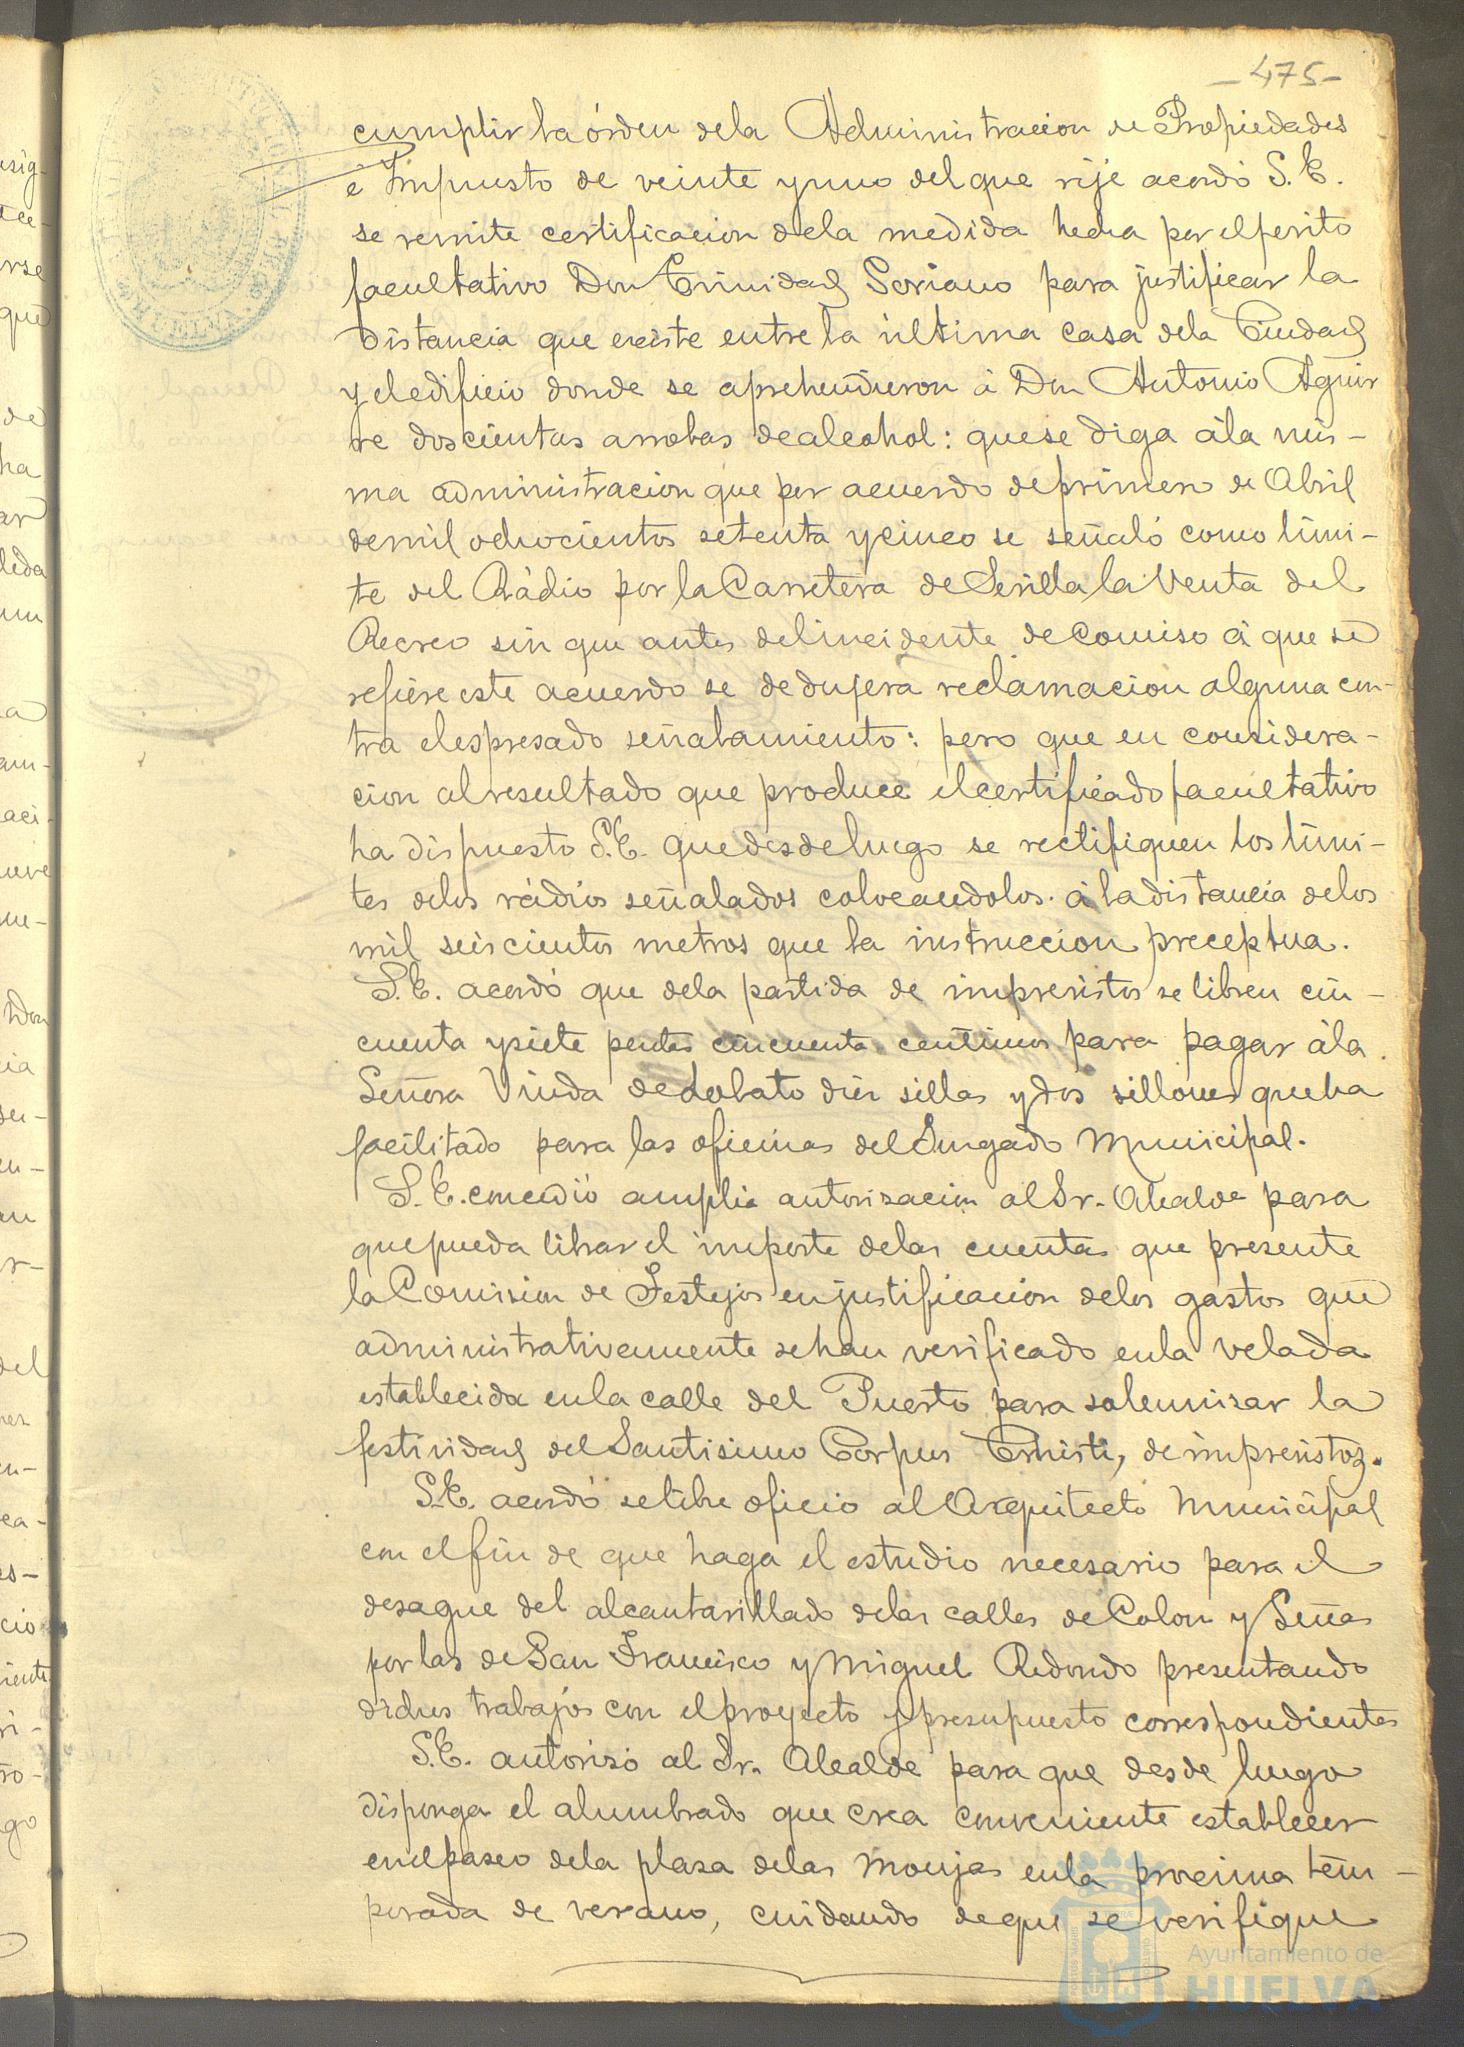 -475-
cumplir la órden dela Administracion de Propiedades
é Impuesto de veinte y uno del que rije acordó S. E.
se remita certificacion dela medida hecha por el perito
facultativo Don Trinidad Soriano para justificar la
distancia que existe entre la última casa dela Ciudad
y el edificio donde se aprehendieron á Don Antonio Aguir
re doscientas arrobas de alcohol: que se diga ála mis-
ma administracion que por acuerdo de primero de Abril
de mil ochocientos setenta y cinco se señaló como lími-
te del Rádio por la Carretera de Sevilla la Venta del
Recreo sin que antes del incidente de comiso á que se
refiere este acuerdo se dedujera reclamacion alguna con-
tra el espresado señalamiento: pero que en considera-
cion al resultado que produce el certificado facultativo
ha dispuesto S.E. que desde luego se rectifiquen los lími-
tes delos rádios señalados colocandolos á la distancia delos
mil seiscientos metros que la instruccion preceptua.
S.E. acordó que dela partida de imprevistos se libren cin-
cuenta y siete pesetas cincuenta centimos para pagar ála
Señora Viuda de Lobato diez sillas y dos sillones que ha
facilitado para las oficinas del Jurgado Municipal.
S.E. concedió amplia autorisacion al Sr. Alcalde para
que pueda librar el importe delas cuentas que presente
la Comision de Festejos en justificacion delos gastos que
administrativamente se han verificado enla velada
establecida enla calle del Puerto para solemnisar la
festividad del Santisimo Corpus Christi, de imprevistos.
S.E. acordó se libre oficio al Arquitecto Municipal
con el fin de que haga el estudio necesario para el
desague del alcantarillado delas calles de Colon y Señas
por las de San Francisco y Miguel Redondo presentando
dichos trabajos con el proyecto y presupuesto correspondientes
S.E. autorisó al Sr. Alcalde para que desde luego
disponga el alumbrado que crea conveniente establecer
en el paseo dela plasa delas Monjas enla procsima tem-
porada de verano, cuidando de que se verifique
Ayuntamiento de
HUELVA